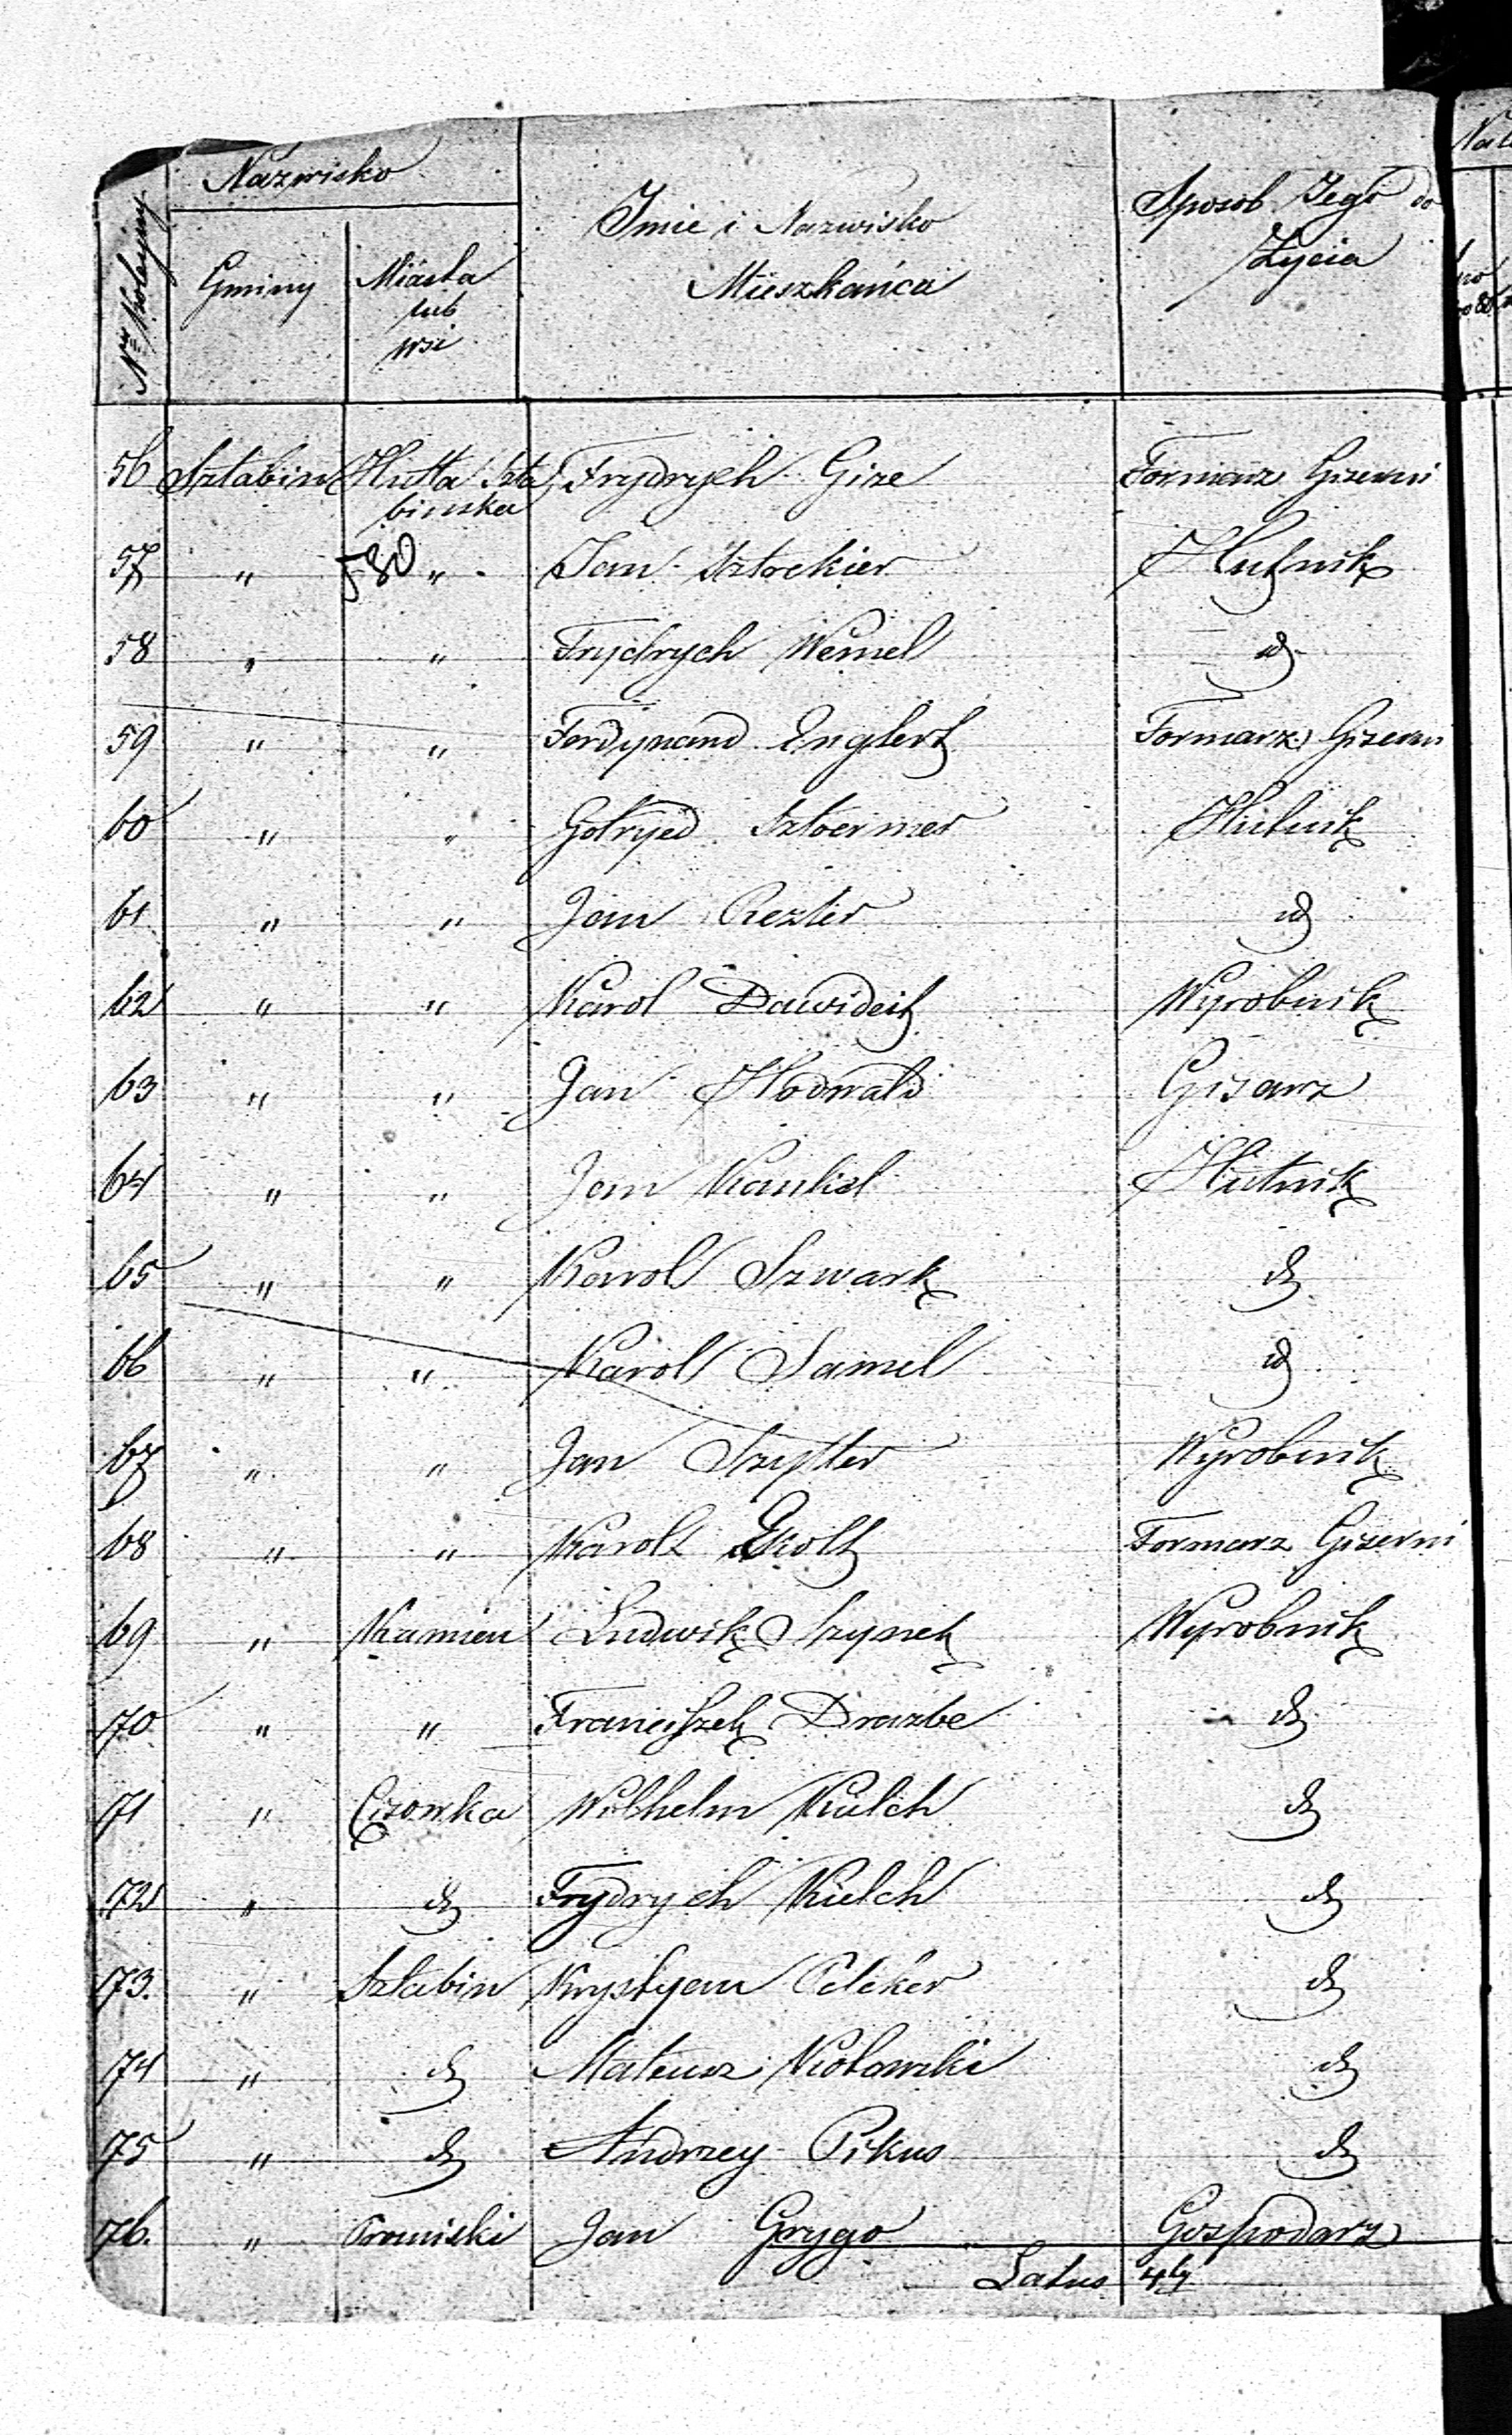 Nro kolejny
Nazwisko
Gminy
Miasta
lub
wsi
Imie i Nazwisko
Mieszkańca
Sposob Jego do
Życia
56 Sztabin Hutta Szta Frydrych Gize Formarz Gizerni
binska
57 " 580 " Jan Sztockier Hutnik
58 " " Frydrych Wemel id
59 " " Ferdynand Englert Formarz Gizerni
60 " " Gotryed Sztoermer Hutnik
61 " " Jan Rezler id
62 " " Karol Dawideit Wyrobnik
63 " " Jan Hodwald Gisarz
64 " " Jan Kankel Hutnik
65 " " Karol Szwark d
66 " " Karol Samel id
67 " " Jan Szytler Wyrobnik
68 " " Karol Ekolt Formarz Gizerni
69 " Kamien Ludwik Szynek Wyrobnik
70 " " Franciszek Drazbe d
71 " Cisowka Wilhelm Kulch d
72 " d Frydrych Kulch d
73. " Sztabin Krystyan Peleker d
74 " d Mateusz Kotowski d
75 " d Andrzey Pikus d
76. " Promiski Jan Grygo Gospodarz
Latus